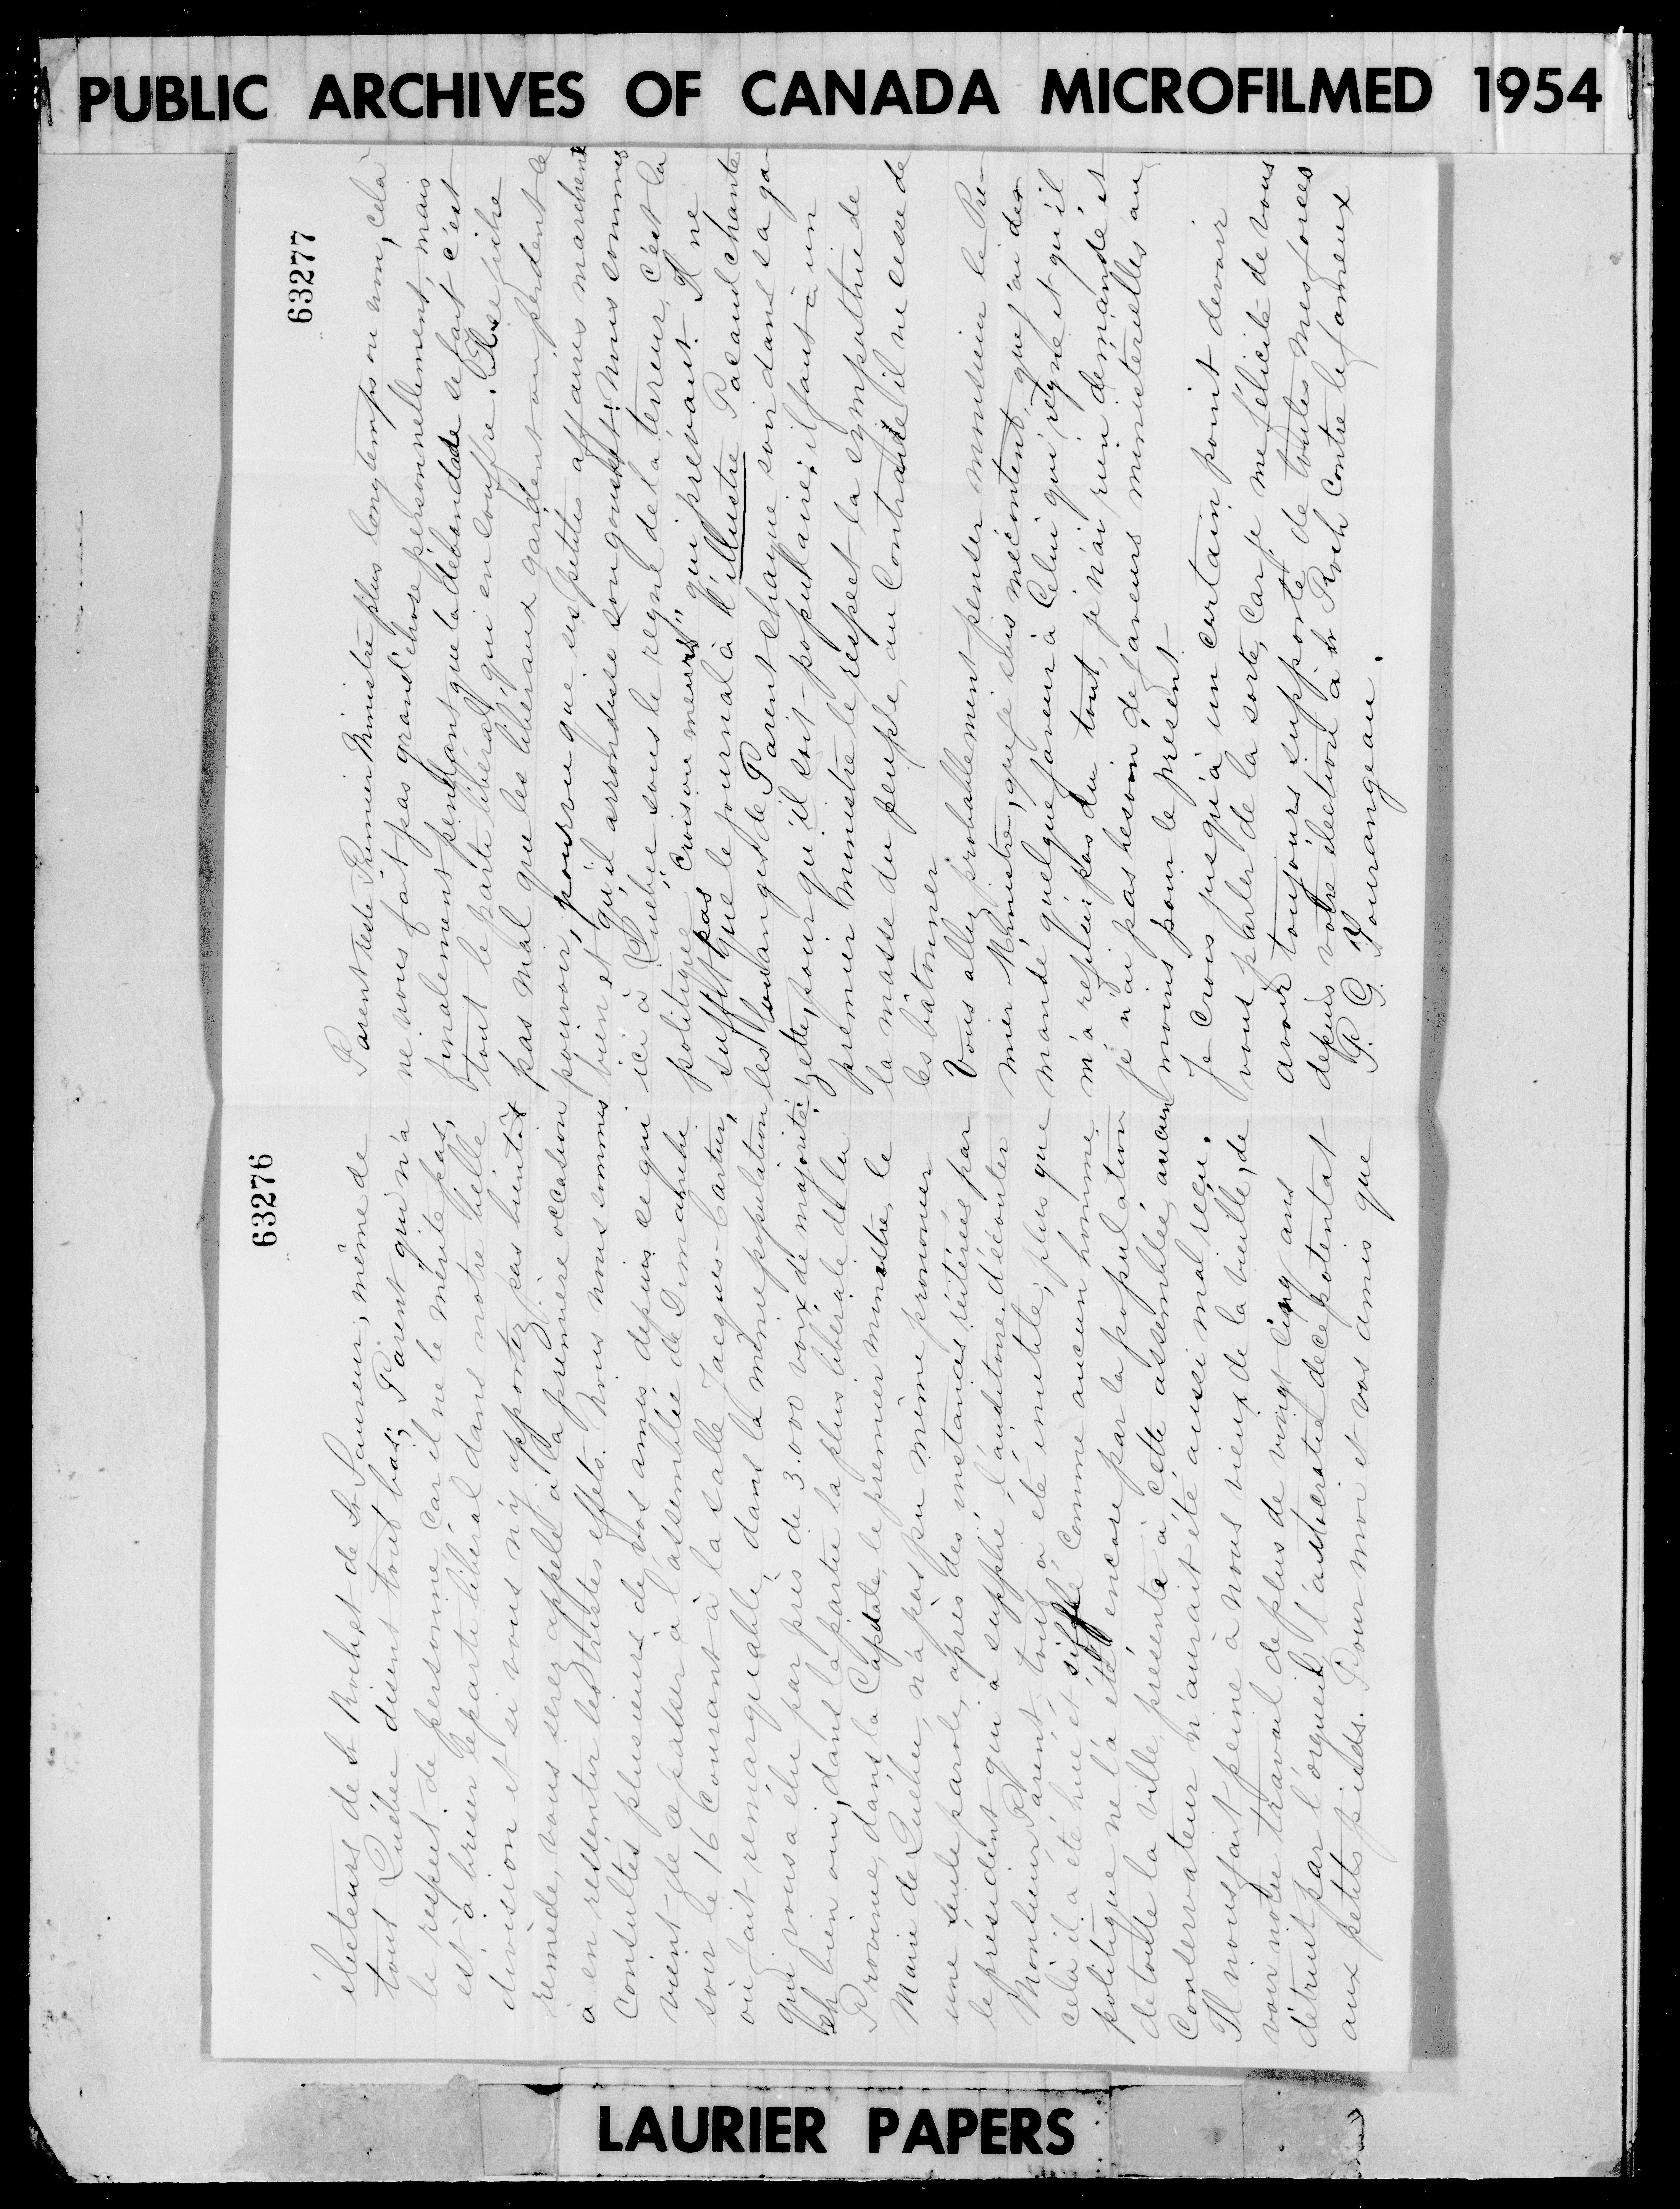 PUBLIC ARCHIVES OF CANADA MICROFILMED 1954
63276
électeurs de St Roch, et de St Sauveur, même de
tout Québec disent tout bas; Parent qui n'a
le respect de personne, car il ne le mérite pas,
est à briser le parti libéral dans notre ville
division et si vous n'y apportez pas bientôt
remède, vous serez appelé à la première occasion
à en ressentir les tristes effets. Nous nous sommes
consultés plusieurs de vos amis depuis ce qui
vient de ce passer à l'assemblée de Dimanche
soir le 16 Courant à la salle Jacques-Cartier,
où fait remarquable, dans la même population
qui vous a élu par près de 3.000 voix de majorité
eh bien oui, dans la partie la plus libérale de la
Province, dans la Capitale, le premier ministre, le
Maire de Québec, n'a pas pu même prononcer
une seule parole, après des instances réitérées par
le président qui a supplié l'auditoire d'écouter
Monsieur Parent, tout a été inutile, plus que
cela il a été hué et sifflé comme aucun homme
politique ne l'a été encore par la population
de toute la ville, présente à cette assemblée, aucun
Conservateur n'aurait été aussi mal reçu.
Il nous fait peine à nous vieux de la vieille, de
voir notre travail de plus de vingt cinq ans
détruit par l'orgueil l'autocratie de ce potentat
aux petits pieds. Pour moi et vos amis que
63277
Parent reste Premier Ministre plus longtemps ou non, cela
ne nous fait pas grand'chose personnellement, mais
finalement pendant que la débandade se fait c'est
tout le parti libéral qui en souffre. Il se fiche
pas mal que les libéraux gardent ou perdent le
pouvoir, pourvu que ses petites affaires marchent
bien et qu'il arrondisse son gousset: nous sommes
ici à Québec sous le règne de la terreur, c'est la
politique "Crois ou meurt" qui prévaut. Il ne
suffit pas que le journal à l'illustre Pacaud chante
les louanges de Parent chaque soir dans sa ga-
zette, pour qu'il soit populaire; il faut à un
premier Ministre le respect la sympathie de
la masse du peuple, au Contraire il ne cesse de
les bâtonner
Vous allez probablement penser monsieur le Pre-
mier Ministre, que je suis mécontent, que j'ai de-
mandé quelque faveur à Celui qui règne et qu'il
m'a refusé pas du tout, je n'ai rien demandé et
je n'ai pas besoin de faveurs ministérielles au
moins pour le présent.
Je Crois jusqu'à un certain point devoir
vous parler de la sorte, car je me félicite de vous
avoir toujours supporté de toutes mes forces
depuis votre élection à St Roch contre le fameux
P. G. Tourangeau.
LAURIER PAPERS